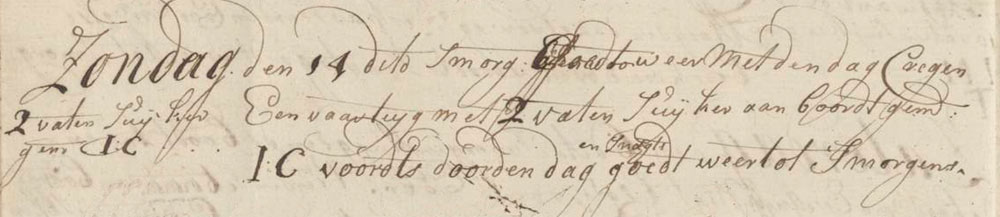 Zondag den 14 dito Smorg: Goedt weer Met den dag Cregen
2 vaten Suijker
gem I:C
Een vaartuyg met 2 vaten Suijker aan boordt gem:
I:C voordts door den dag en Snagts goedt weer tot Smorgens.